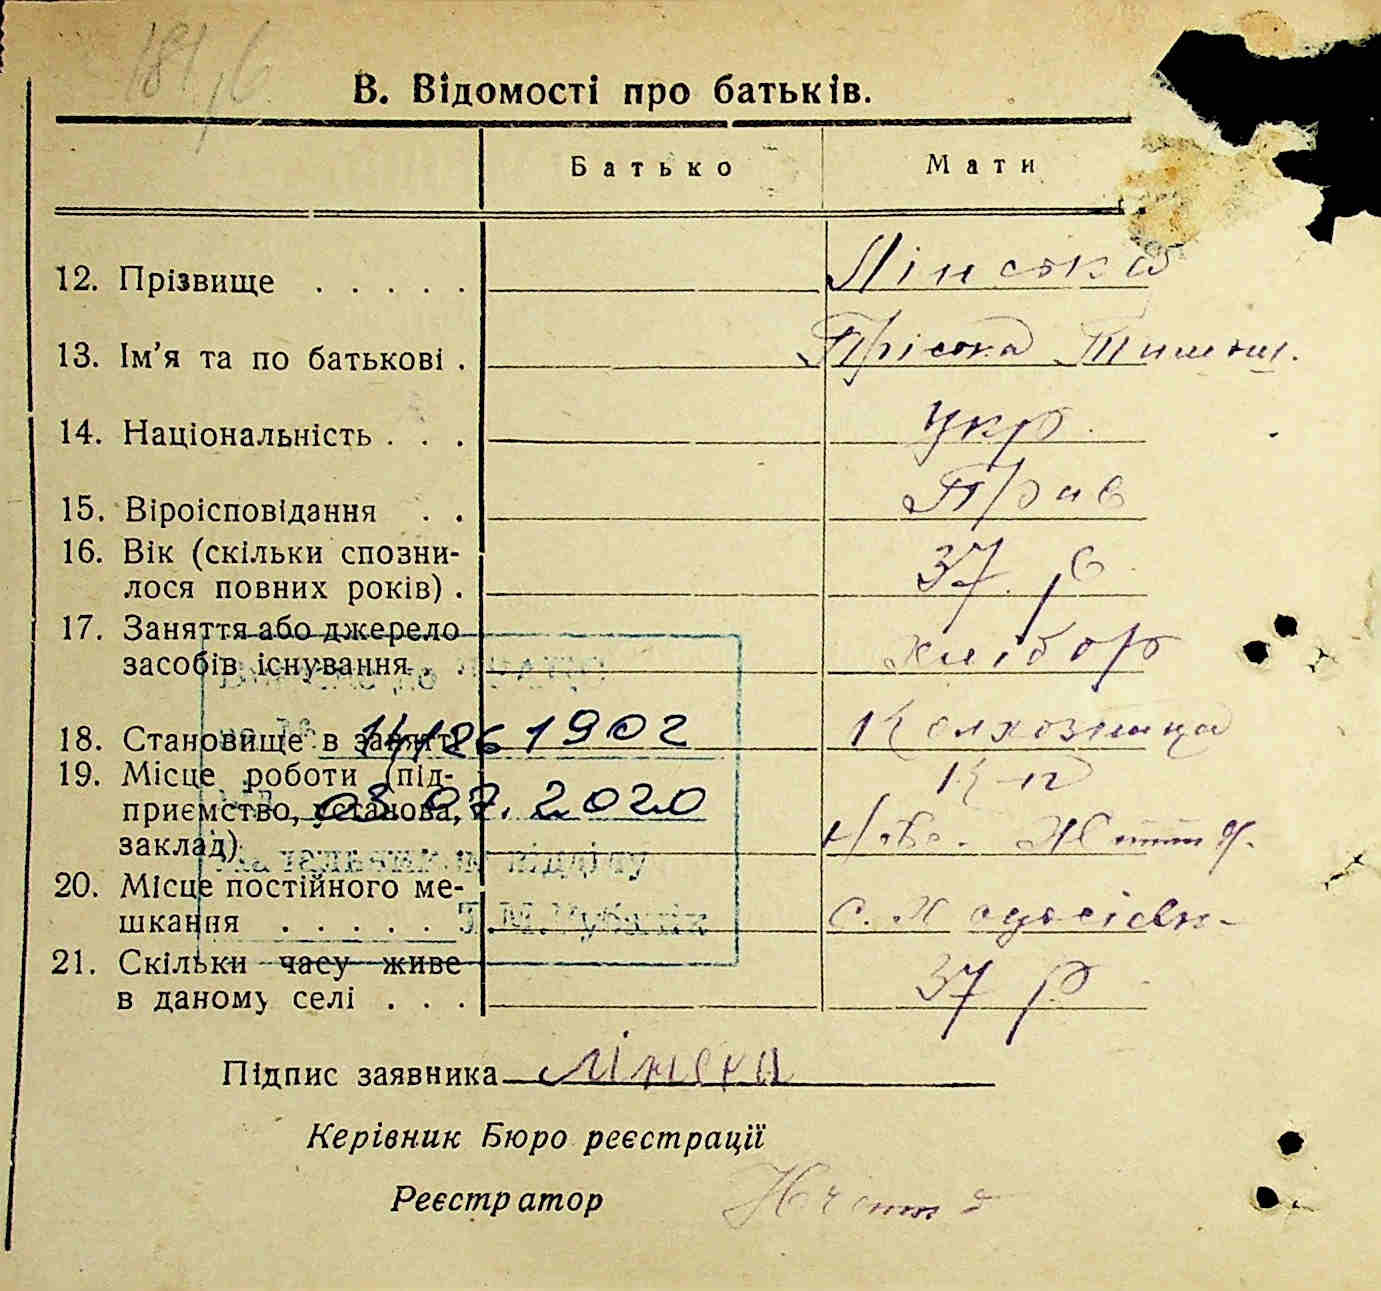 181,6
В. Відомості про батьків.
Батько Мати
12. Прізвище . . . . . Лінська
13. Ім'я та по батькові . Пріська Тимош.
14. Національність . . . Укр.
15. Віроісповідання . . Прав
16. Вік (скільки спозни-
лося повних років) . 37 р
17. Заняття або джерело
засобів існування . . хлібор
18. Становище в занятті Колхозница
14/26 1902
19. Місце роботи (під- К-п
приємство, установа, 03 07. 2020
заклад) Ново. Життя.
20. Місце постійного ме-
шкання . . . . . с.
21. Скільки часу живе
в даному селі . . . 37 р
Підпис заявника Лінска
Керівник Бюро реєстрації
Реєстратор